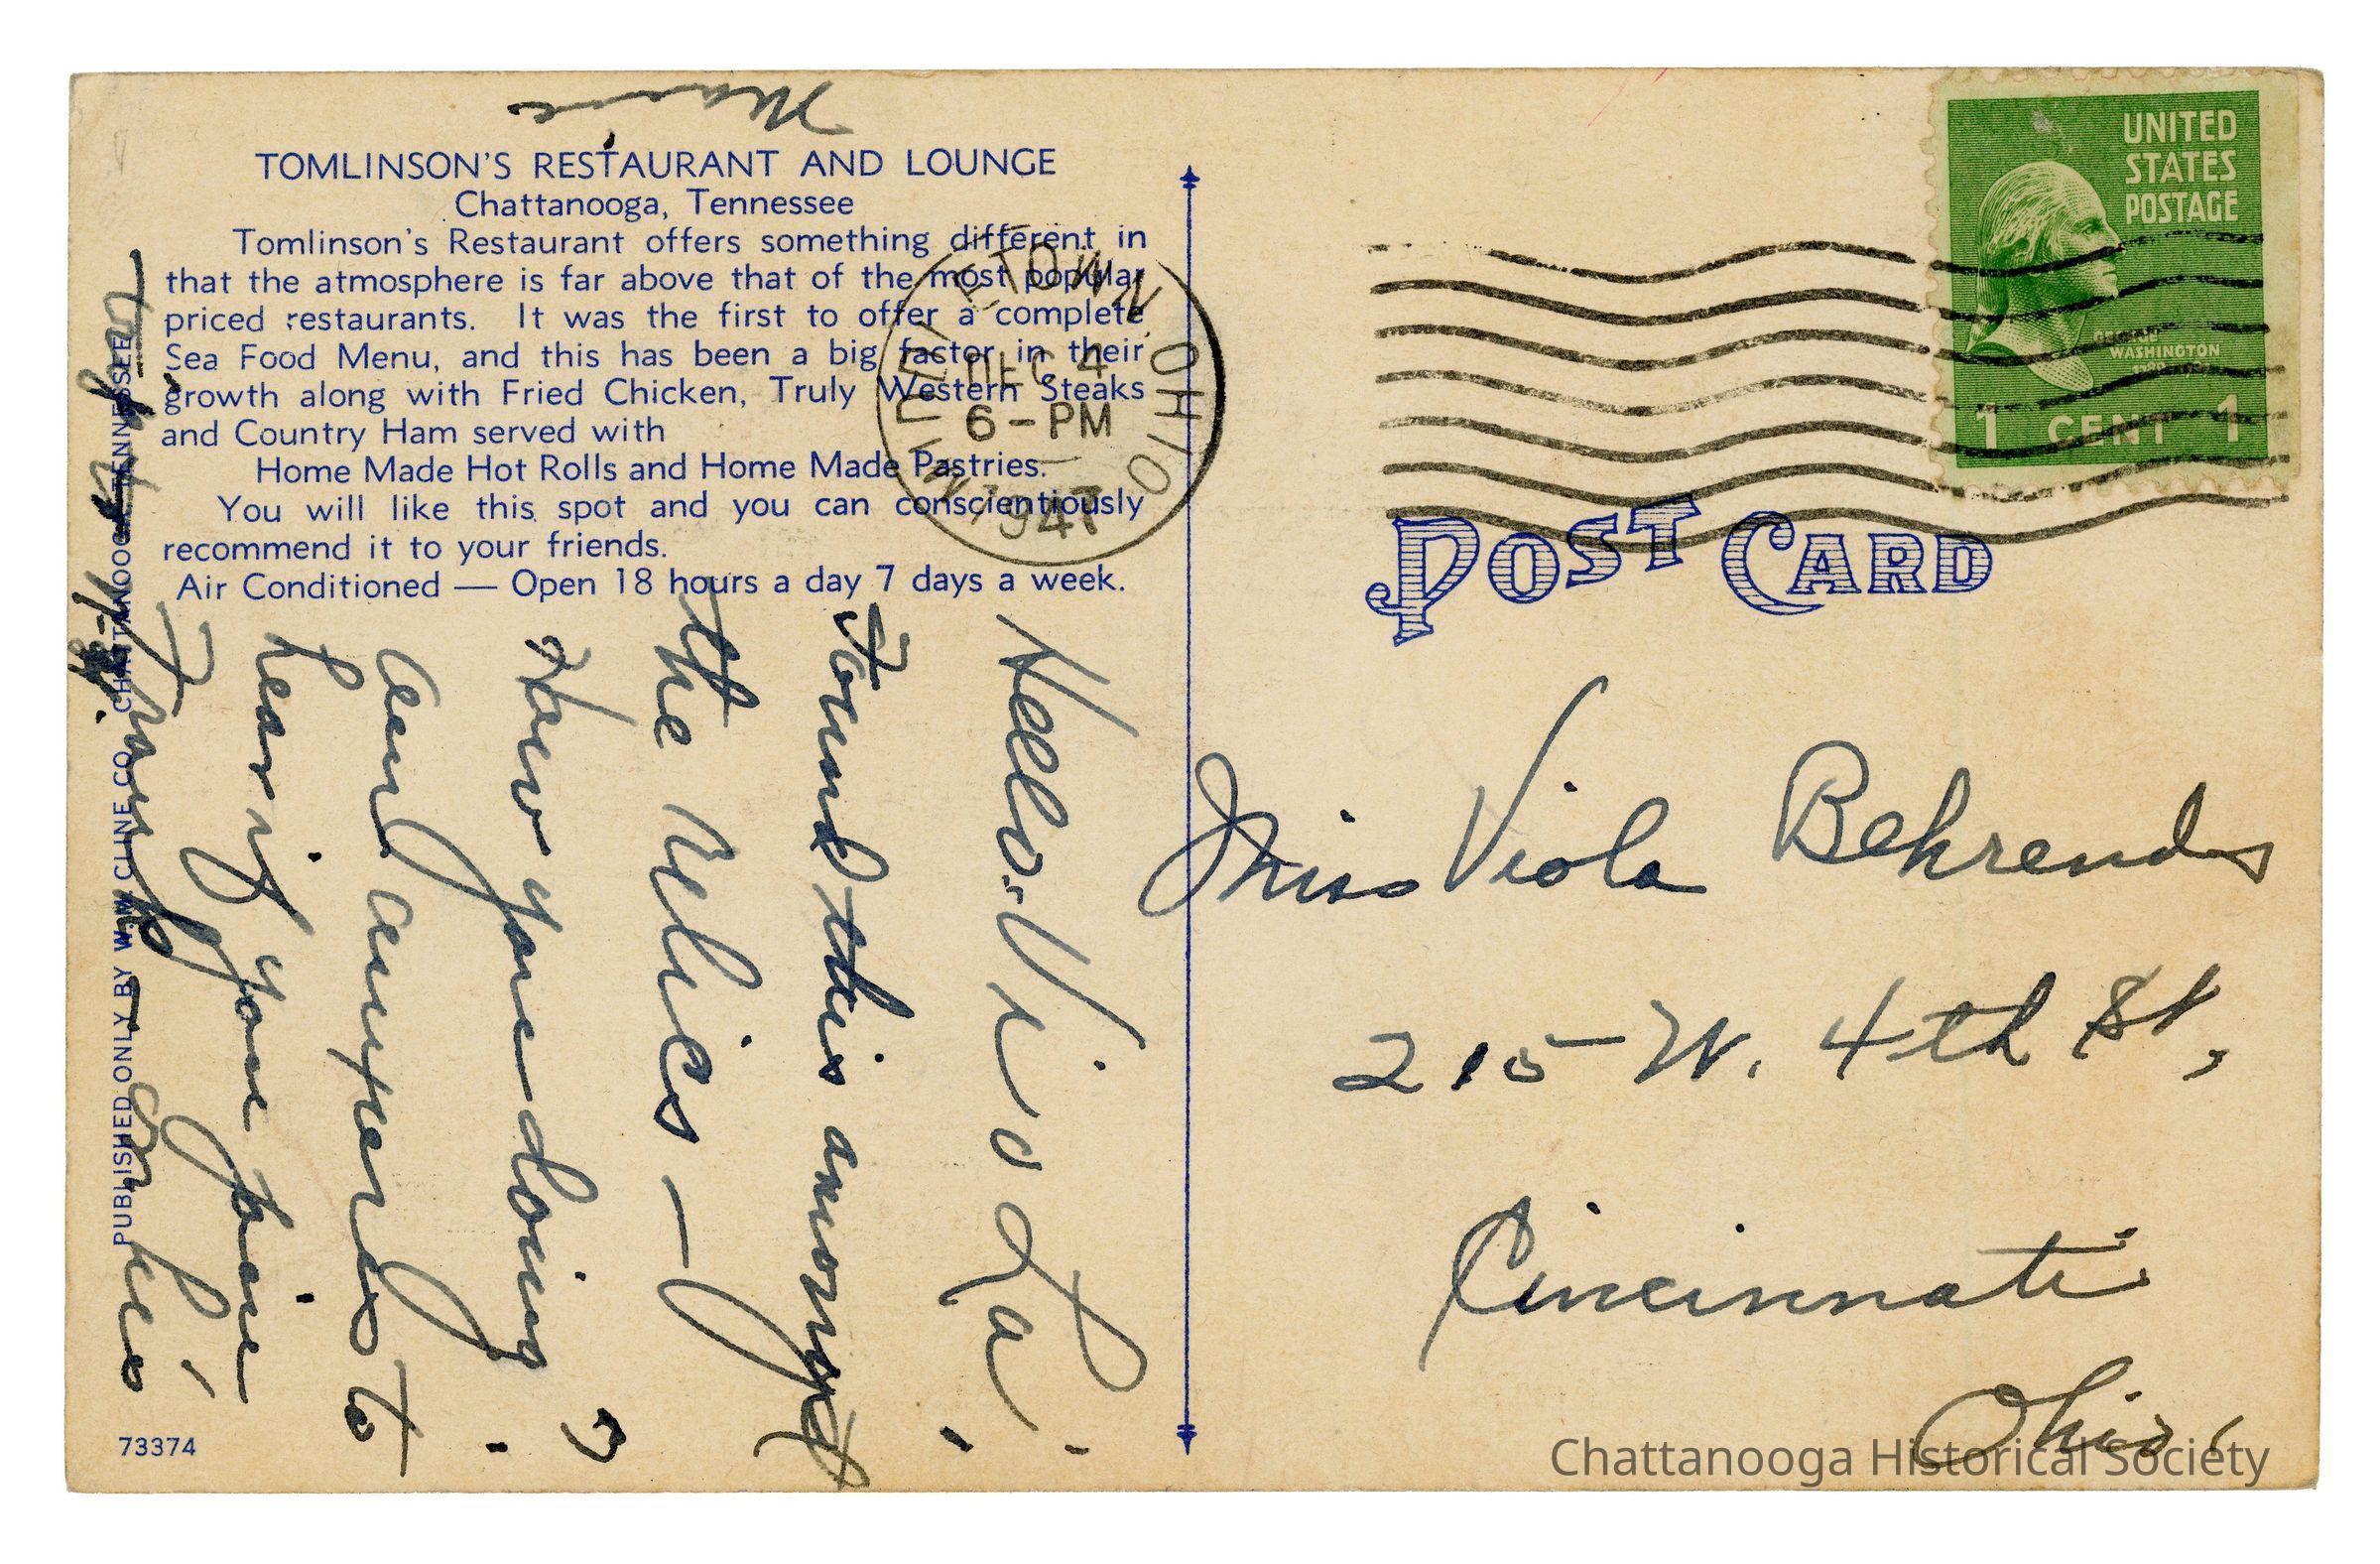 TOMLINSON'S RESTAURANT AND LOUNGE
Chattanooga, Tennessee
Tomlinson's Restaurant offers something different in
that the atmosphere is far above that of the most popular
priced restaurants. It was the first to offer a complete
Sea Food Menu, and this has been a big factor in their
growth along with Fried Chicken, Truly Western Steaks
and Country Ham served with
Home Made Hot Rolls and Home Made Pastries.
You will like this spot and you can conscientiously
recommend it to your friends.
Air Conditioned — Open 18 hours a day 7 days a week.
PUBLISHED ONLY BY W.M. CLINE CO., CHATTANOOGA, TENNESSEE
73374
Hello Viola:
Found this amongst
the relics —
How you doing?
and anxious to
hear if your
Marie
OHIO
DEC 4
6-PM
1947
UNITED
STATES
POSTAGE
GEORGE
WASHINGTON
1 CENT 1
POST CARD
Miss Viola Behrends
215 W. 4th St,
Cincinnati
Ohio
Chattanooga Historical Society